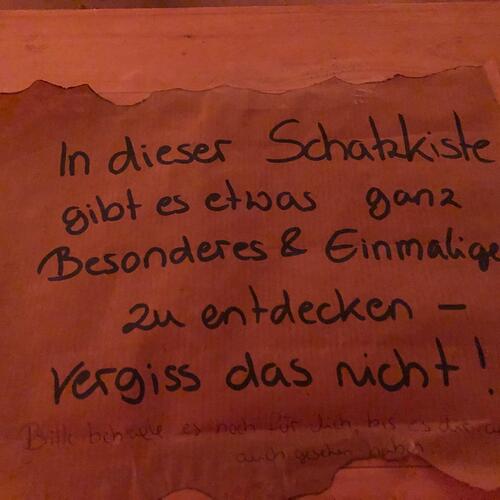 In dieser Schatzkiste
gibt es etwas ganz
Besonderes & Einmalige
zu entdecken –
vergiss das nicht!
Bitte behalte es noch für dich, bis es die
auch gesehen haben